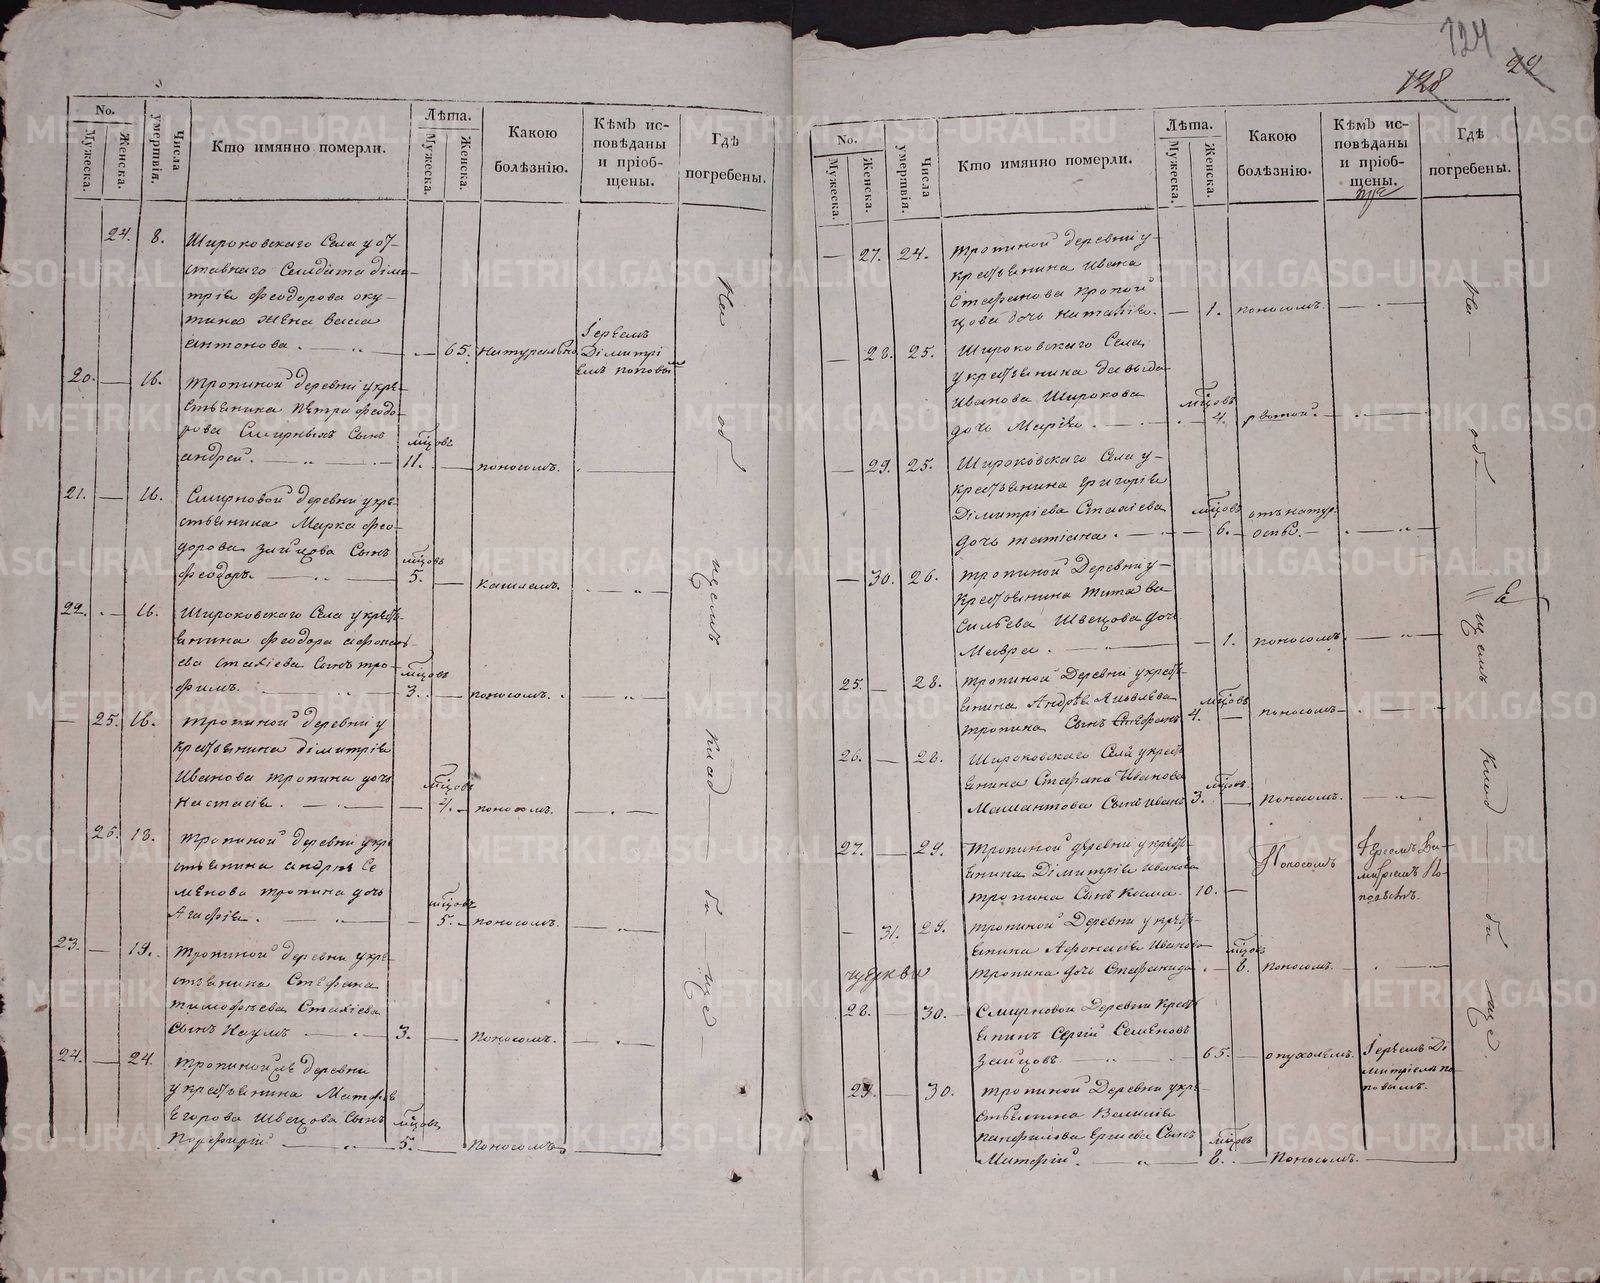 No.
Мужеска.
Женска.
Числа умертвія.
Кто имянно померли.
Лѣта.
Мужеска.
Женска.
Какою болѣзнію.
Кѣмъ исповѣданы и пріобщены.
Гдѣ погребены.
24. 8. Широковскаго Села у от-
ставнаго Солдата Діми-
трія Феодорова оку-
тина жена Васса
антонова. — 65. натурально. Іереемъ
Димитрі
емъ поповы
20. — 16. тропиной деревни у кре-
стьянина Петра Феодо-
рова Смирныхъ Сынъ
андрей. мѣсцовъ 11. — поносомъ.
21. — 16. Смирновой деревни у кре-
стьянина Марка Фео-
дорова зайцова Сынъ
Феодоръ. мѣсцовъ 5. — кашлемъ.
22. — 16. Широковскаго Села у крест-
янина Феодора афонась-
ева стахіева Сынъ тро-
фимъ. мѣсцовъ 3. — поносомъ.
— 25. 16. тропиной деревни у
крестьянина димитрія
Иванова тропина дочь
Настасія. — мѣсцовъ 4. — поносомъ.
26. 18. тропиной деревни у кре
стьянина андрея Се
менова тропина дочь
Агафія. мѣсцовъ 5. — поносомъ.
23. — 19. тропиной деревни у кре-
стьянина Стефана
тимофѣева Стахіева
Сынъ Наумъ — 3. — поносомъ.
24. — 24. тропиной деревни
у крестьянина Матфея
Егорова Швецова Сынъ
Порфирій мѣсцовъ 5. — поносомъ
На об щемъ клад би ще
124
128
22
No.
Мужеска.
Женска.
Числа умертвія.
Кто имянно померли.
Лѣта.
Мужеска.
Женска.
Какою болѣзнію.
Кѣмъ исповѣданы и пріобщены.
Гдѣ погребены.
— 27. 24. тропиной деревни у
крестьянина Ивана
Стефанова
дочь наталія. — 1. поносомъ.
— 28. 25. Широковскаго Села
у крестьянина давыда
Иванова Широкова
дочь Марія. — мѣсцовъ 4. рвотой.
— 29. 25. Широковскаго Села у-
крестьянина григорія
Димитріева Стахіева
дочь татіана. — мѣсцовъ 6. отъ натур.
оспы.
— 30. 26. тропиной Деревни у-
крестьянина тита Ва
сильева Швецова дочь
Мавра. — 1. поносомъ.
25. — 28. тропиной Деревни у крест-
янина Андрея Яковлева
тропина Сынъ Стефанъ мѣсцовъ 4. — поносомъ
26. — 28. Широковскаго Села у крест
янина Стефана Иванова
Мамантова Сынъ Иванъ мѣсцовъ 3. — поносомъ.
27. — 29. Тропиной деревни у крест-
янина Димитрія Иванова
тропина Сынъ Козма. 10. — Поносомъ Іереемъ Ди-
митріемъ По-
повымъ.
— 31. 29. тропиной Деревни у крест-
янина Афонасія Иванова
тропина дочь Стефанида. — мѣсцовъ 8. поносомъ.
церкви
28. — 30. Смирновой Деревни крест-
янинъ Сергій Семеновъ
Зайцовъ 65. — опухолемъ. Іереемъ Ди
митріемъ по
повымъ.
29. — 30. тропиной Деревни у кре-
стьянина Василія
панфилова Сынъ
Митрфій. — мѣсцовъ 8. — поносомъ.
На об щемъ клад би ще.
METRIKI.GASO-URAL.RU